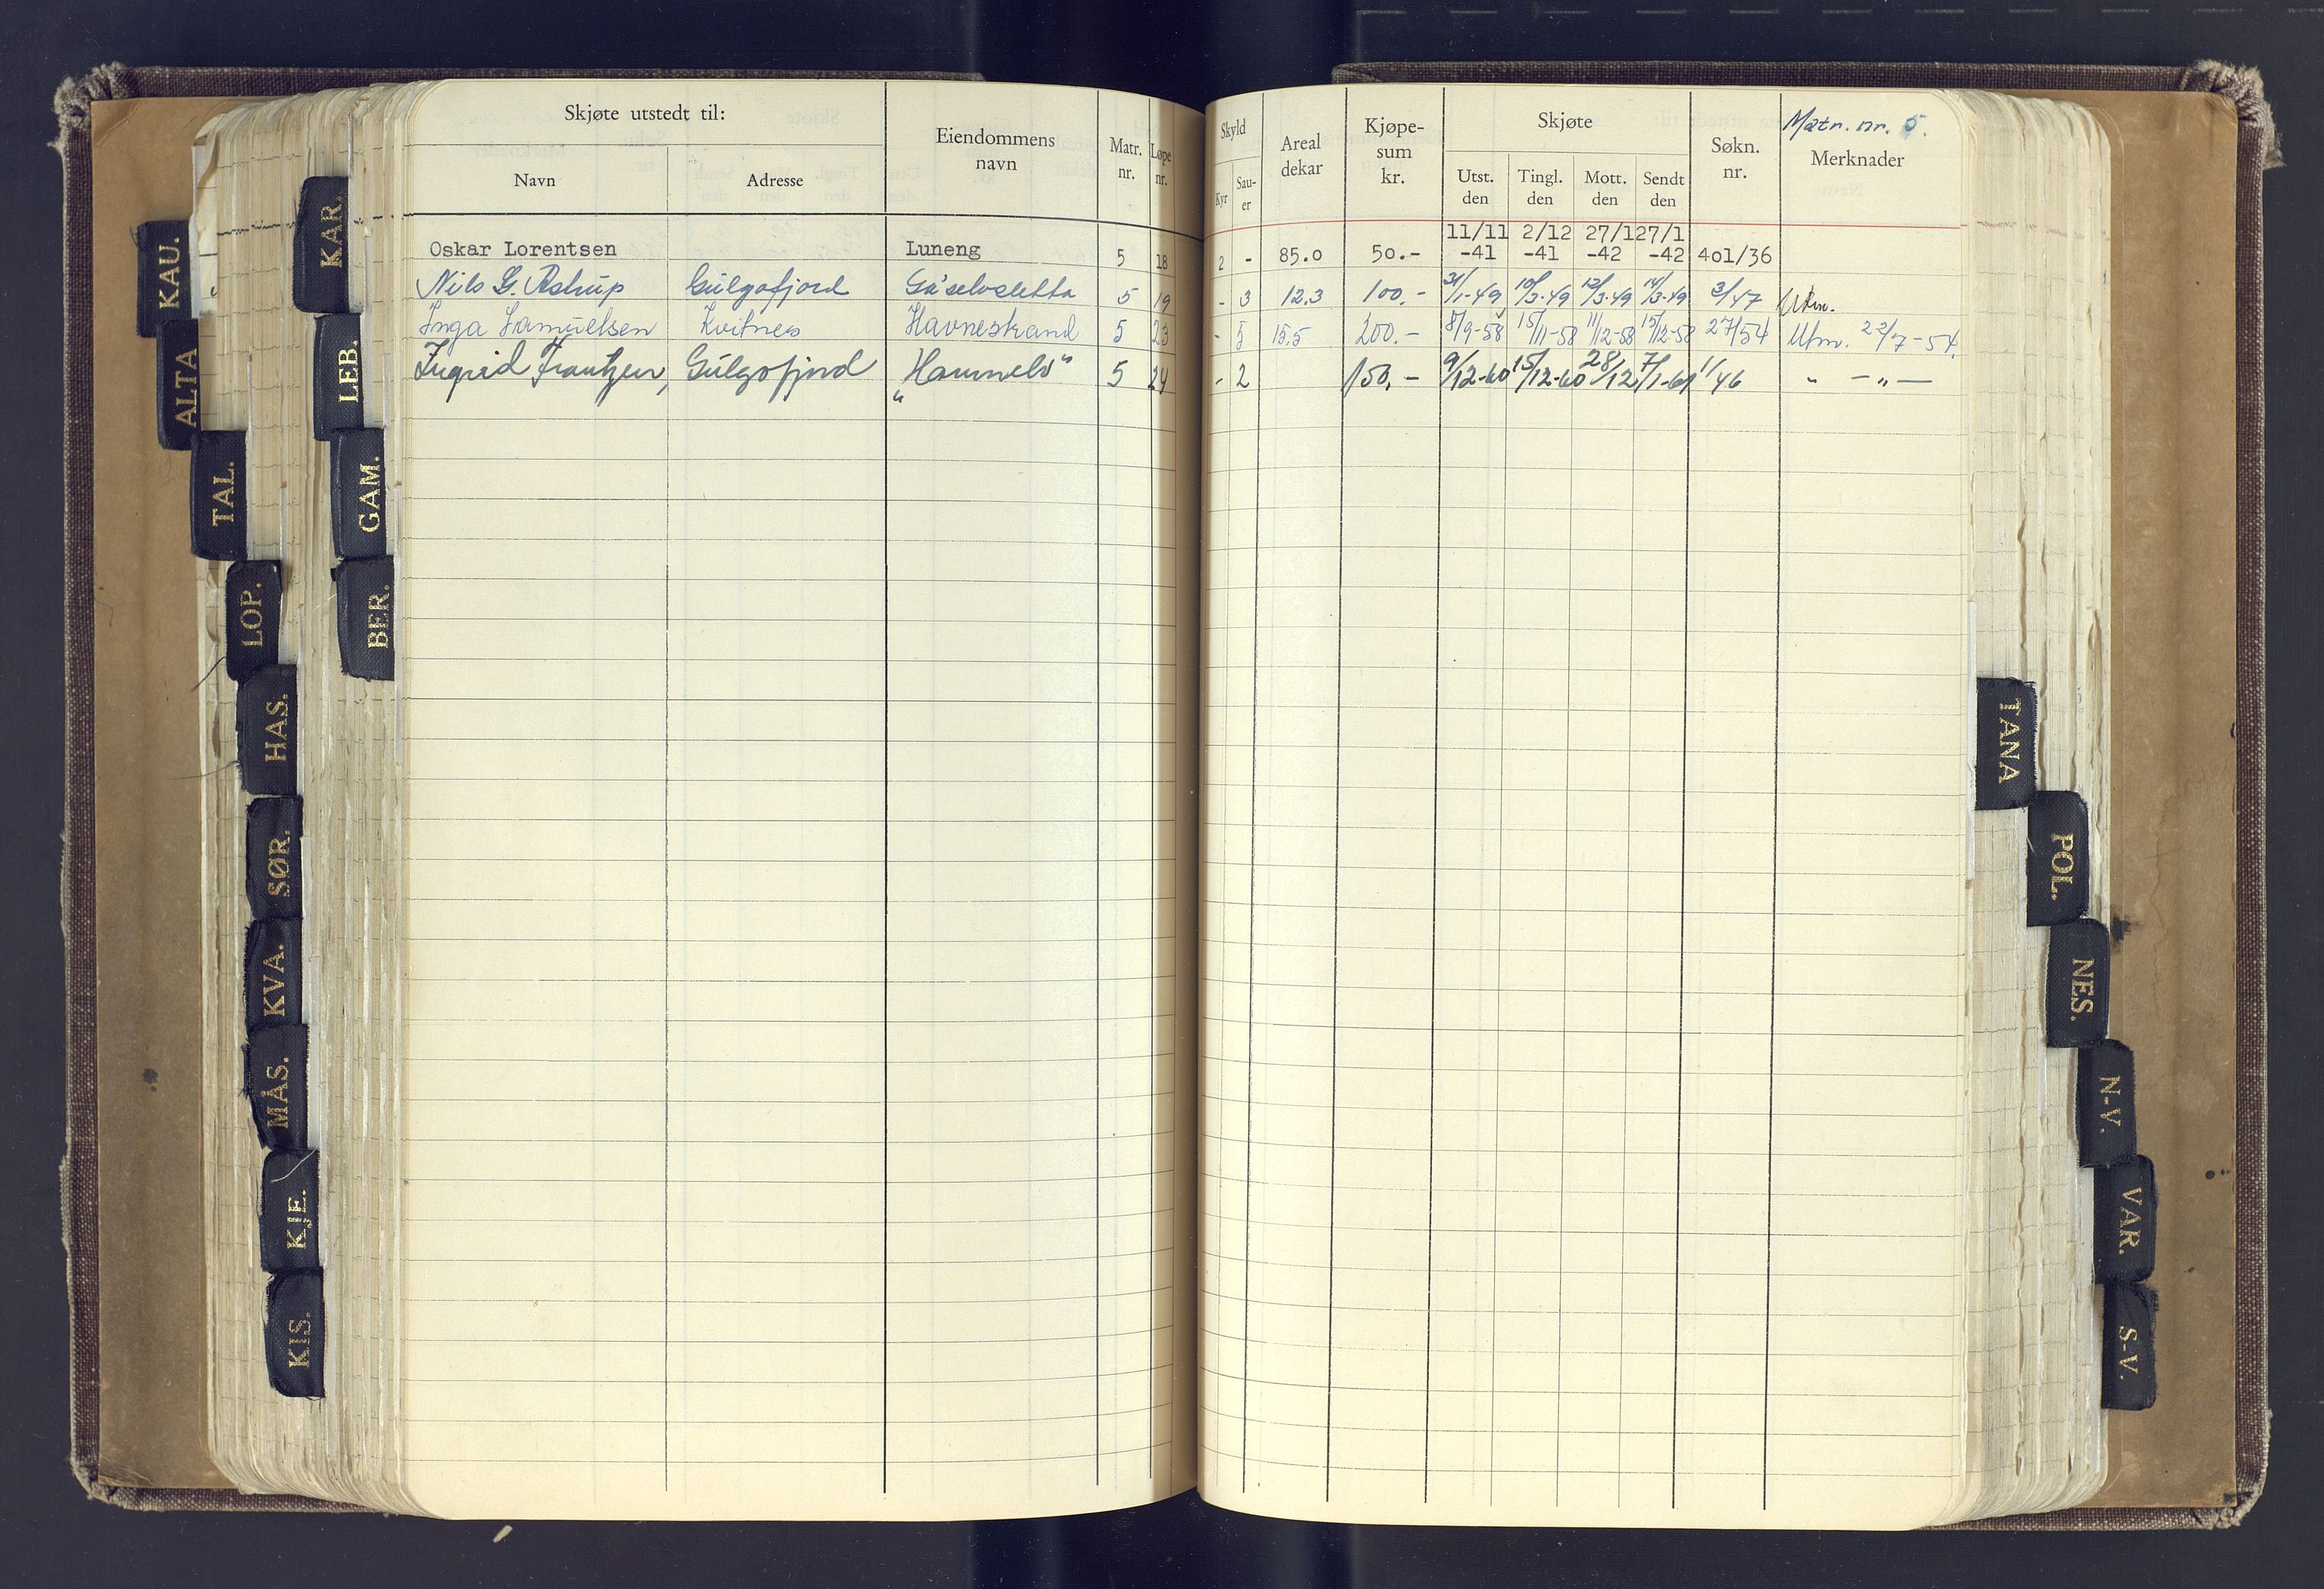 Skjøte utstedt til:
Navn
Adresse
Eiendommens navn
Matr. nr.
Løpe nr.
Skyld
Kyr
Sau-er
Areal dekar
Kjøpe-sum kr.
Skjøte
Utst. den
Tingl. den
Mott. den
Sendt den
Søkn. nr.
Matr. nr. 5.
Merknader
11/11 2/12 27/1 27/1
Oskar Lorentsen Luneng 5 18 2 - 85.0 50.- -41 -41 -42 -42 401/36
Nils G. Astrup Gulgofjord 5 19 - 3 12.3 100.- 31/1-49 10/3-49 12/3-49 14/3-49 3/47 Utm.
Inga Samuelsen Kvitnes Havnestrand 5 23 - 5 15,5 200.- 8/9-58 15/11-58 11/12-58 15/12-58 27/54 Utm. 22/7-54.
Ingrid Frantzen, Gulgofjord "Hamnelv" 5 24 - 2 150,- 9/12-60 15/12-60 28/12 7/1-61 11/46 " - " -
KAU.
ALTA
TAL.
LOP.
HAS.
SØR.
KVA.
MÅS.
KJE.
KIS.
KAR.
LEB.
GAM.
BER.
TANA
POL.
NES.
N-V.
VAR.
S-V.